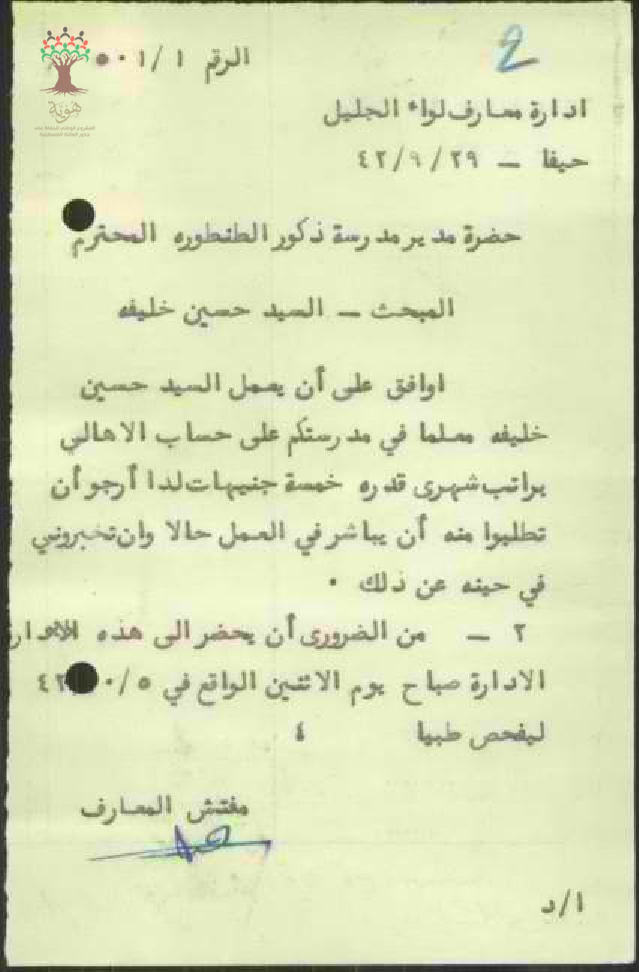 2
الرقم ١ /١ ٥٠
هوية
ادارة معارف لواء الجليل
حيفا — ٤٢/٩/٢٩
حضرة مدير مدرسة ذكور الطنطوره المحترم
المبحث — السيد حسين خليفه
اوافق على أن يعمل السيد حسين
خليفه معلما في مدرستكم على حساب الاهالي
براتب شهرى قدره خمسة جنيهات لذا أرجو أن
تطلبوا منه أن يباشر في العمل حالا وان تخبروني
في حينه عن ذلك ٠
٢ — من الضرورى أن يحضر الى هذه
الادارة صباح يوم الاثنين الواقع في
ليفحص طبيا
مفتش المعارف
ا/د